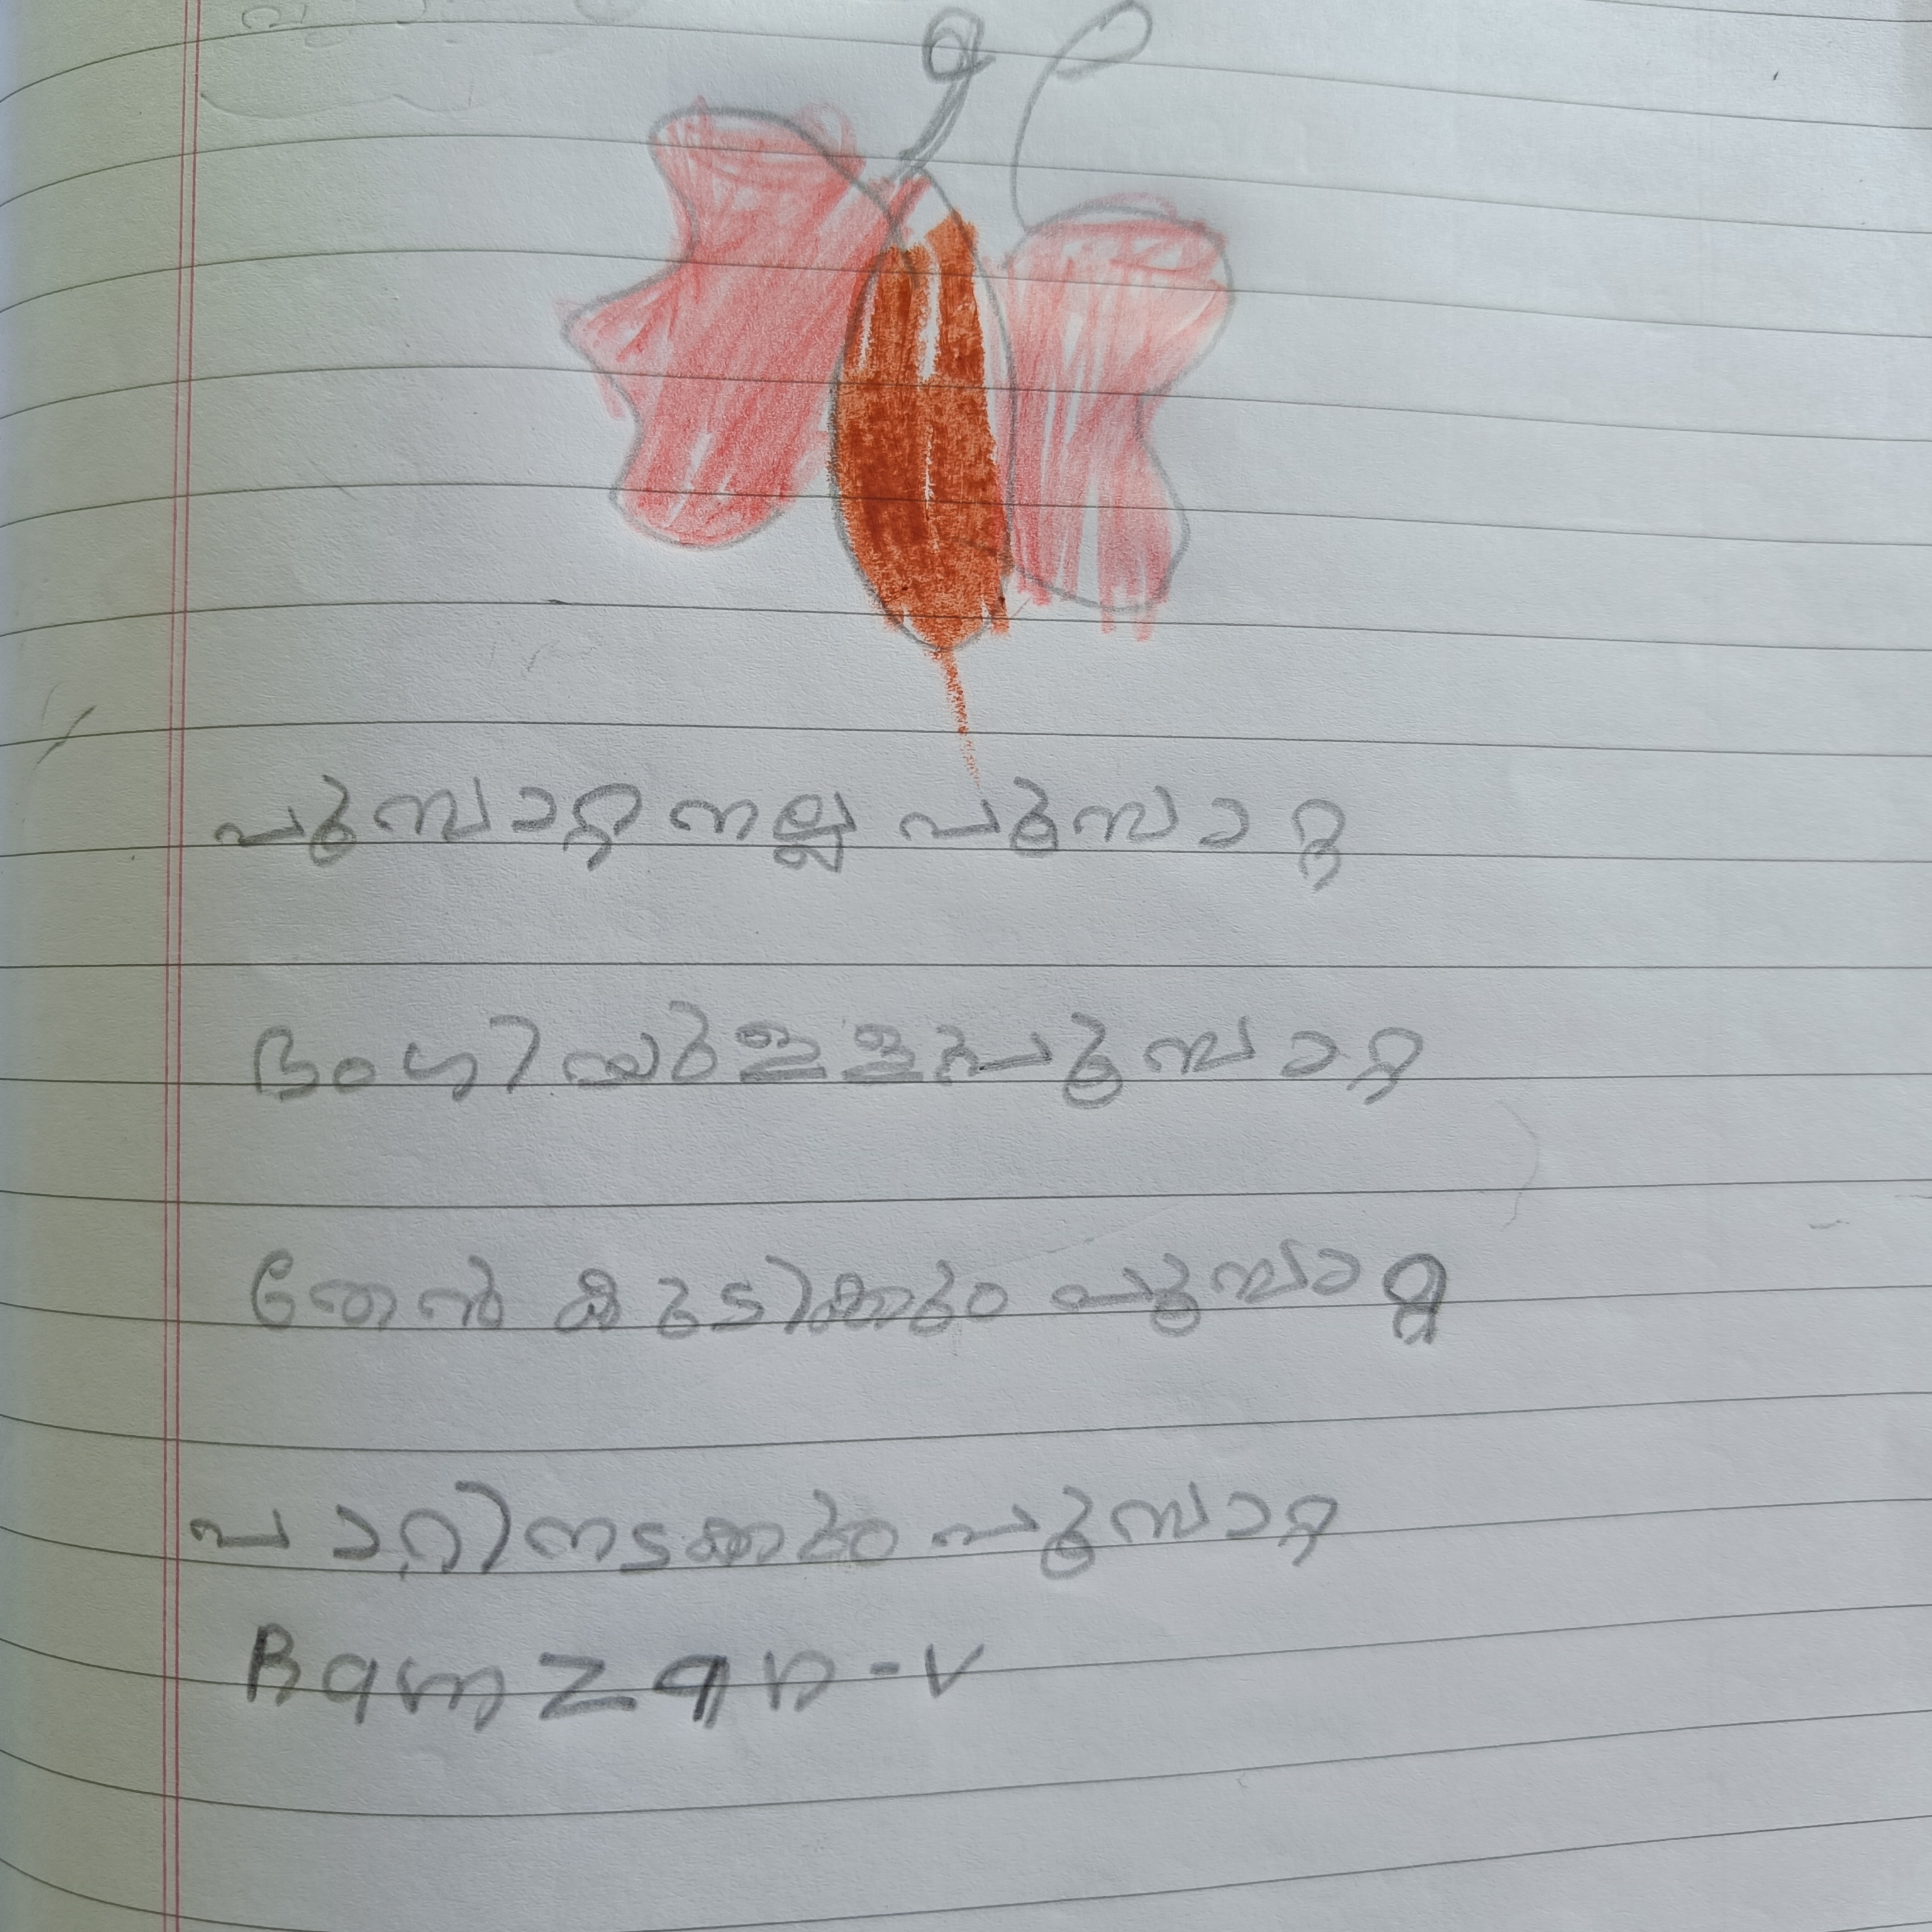 പൂമ്പാറ്റ നല്ല പൂമ്പാറ്റ
ഭംഗിയുള്ള പൂമ്പാറ്റ
തേൻ കുടിക്കും പൂമ്പാറ്റ
പാറി നടക്കും പൂമ്പാറ്റ
Bamzan-V